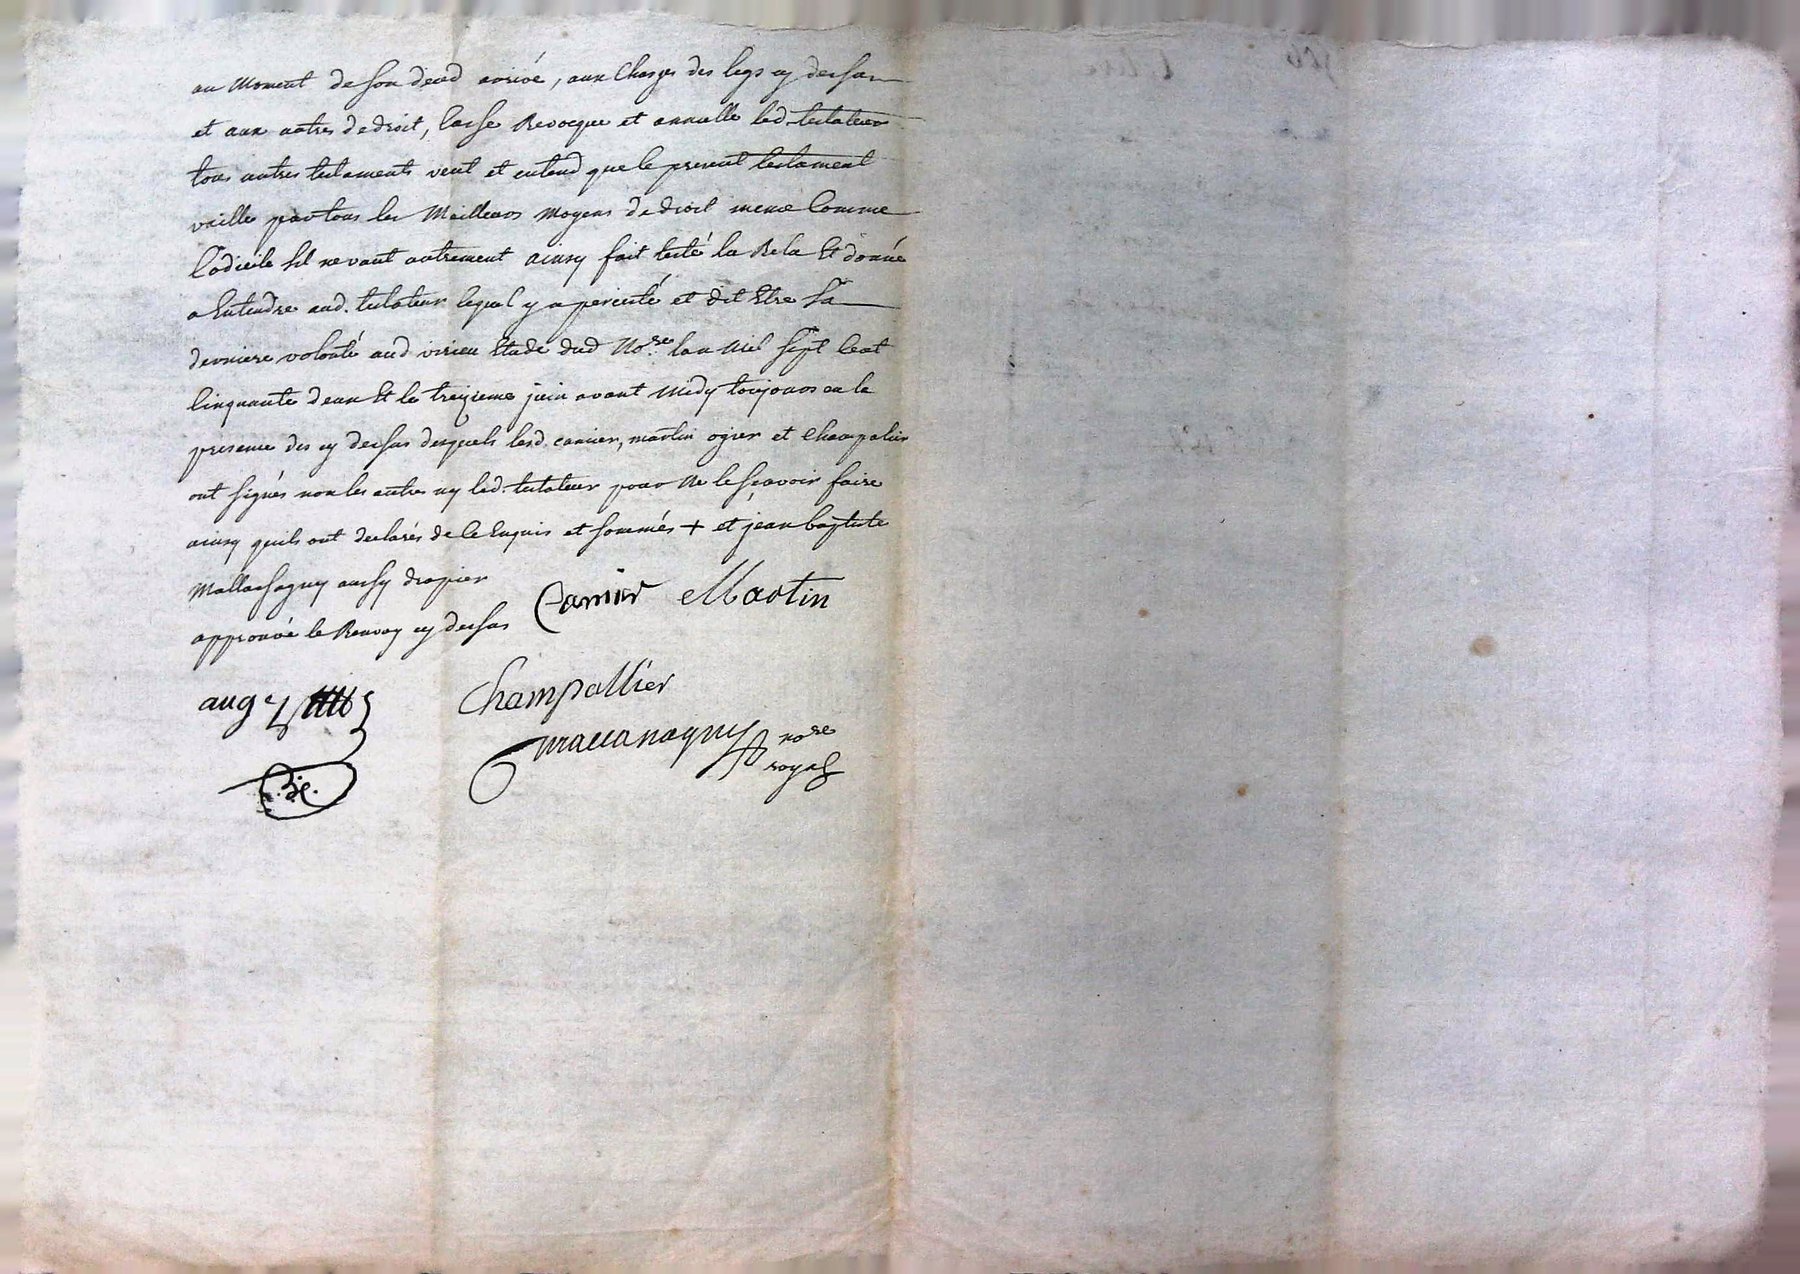 au Moment de son deced arrivé, aux Charges des legs cy dessus
et aux autres de droit, Casse Revocque et annulle led. testateur
tous autres testaments veut et entend que le present testament
vaille par tous les Meilleurs moyens de droit meme Comme
Codicile sil ne vaut autrement ainsy fait testé lu Rela Et donné
a Entendre aud. testateur lequel y a percisté et dit Etre Sa
derniere volonté aud virieu Etude dud No.re lan Mil Sept Cent
Cinquante deux Et le treizieme juin avant Midy toujours en la
presence des cy dessus desquels lesd. carrier, martin ogier et Champalier
ont signés non les autres ny led. testateur pour Ne le sçavoir faire
ainsy quils ont declarés de ce Enquis et sommés + et jean baptiste
aussy drapier
approuvé le Renvoy cy dessus
Carrier Martin
Champallier
no re
royal